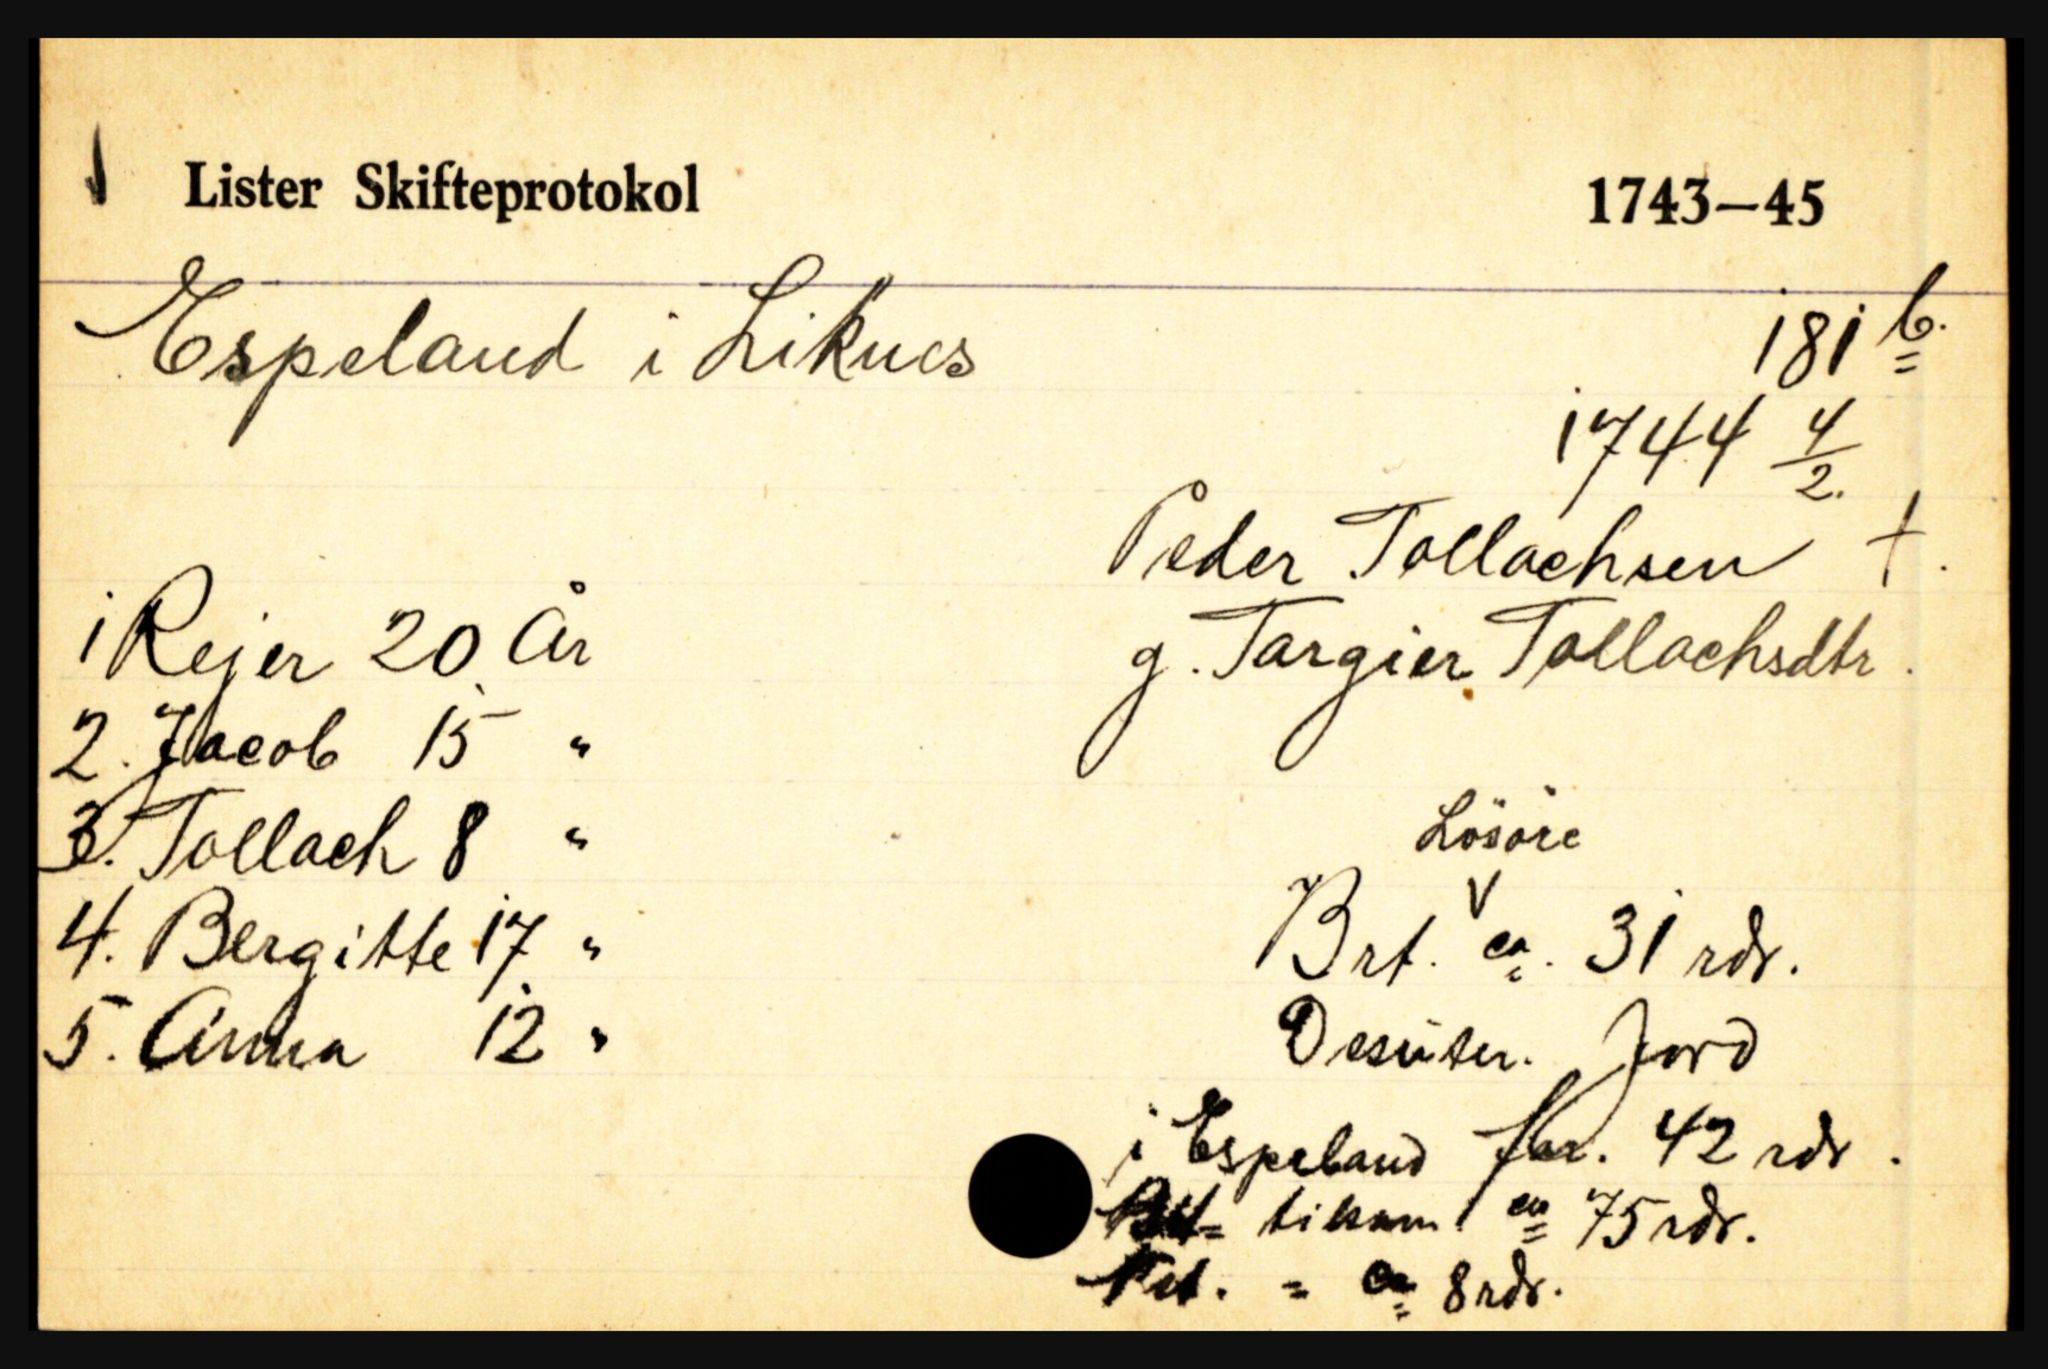 Lister Skifteprotokol 1743—45
Espeland i Liknes 181 b.
1744 4/2.
Peder Tollachsen †.
g. Targier Tollachsdtr.
1 Rejer 20 År
2. Jacob 15 "
3. Tollach 8 "
4. Bergitte 17 "
5. Anna 12 "
Lösöre
Brt. V ca. 31 rdr.
Desuten. Jord
i Espeland for. 42 rdr.
Brt= tilsam. ca 75 rdr.
Net. = ca 8 rdr.